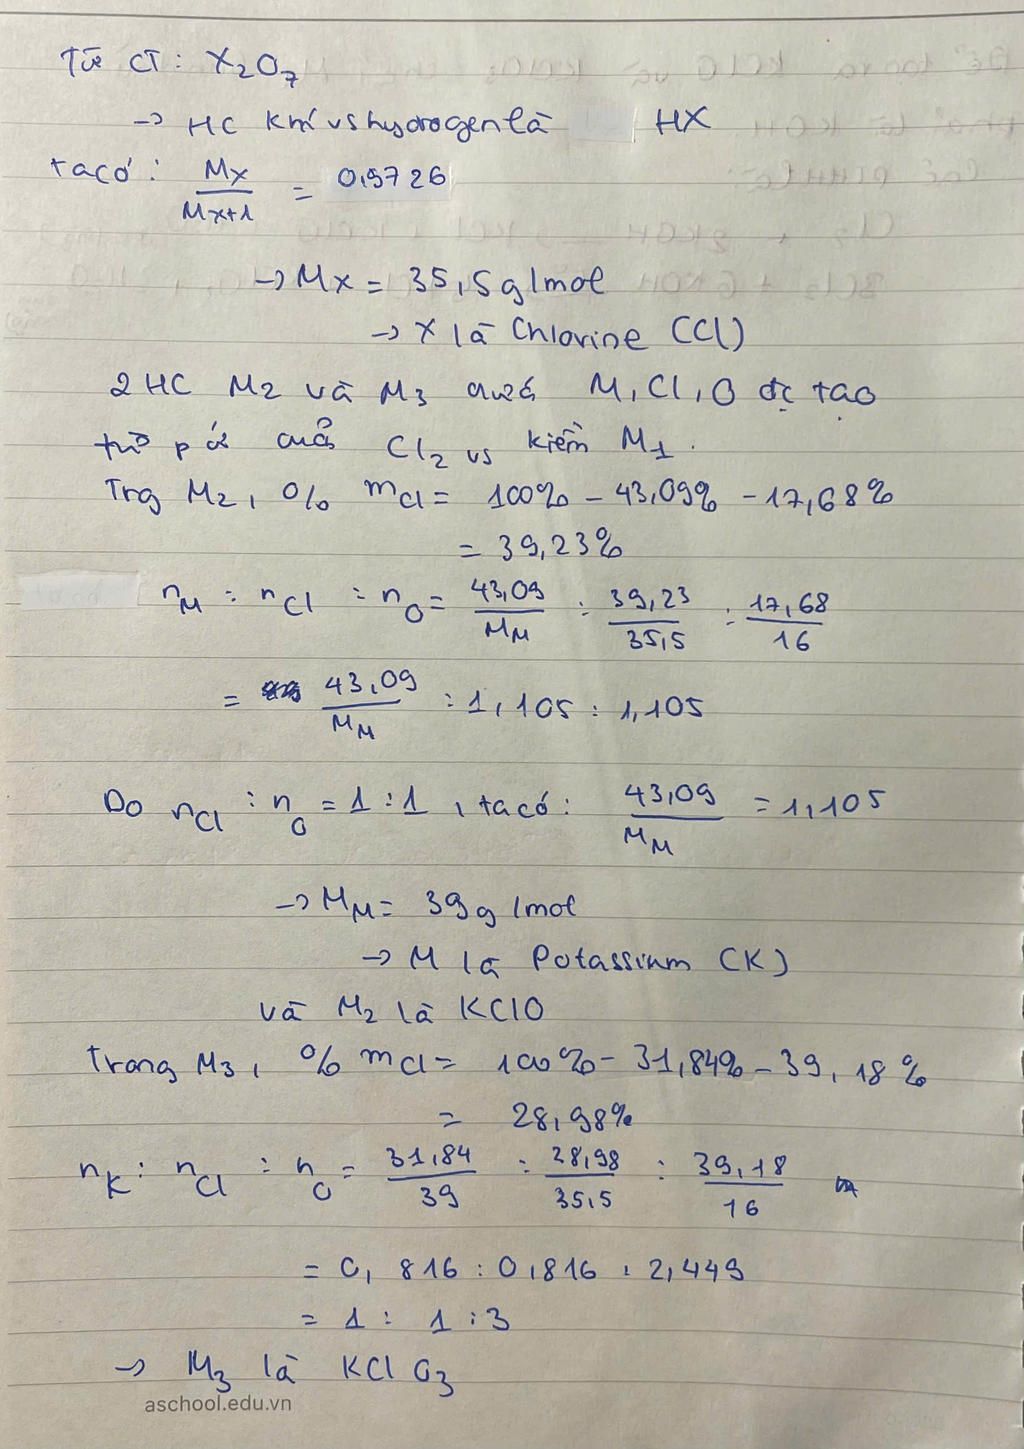 Từ CT: X₂O₇
→ HC khí vs hydrogen là HX
ta có: Mx / Mx+1 = 0,9726
→ Mx = 35,5 g/mol
→ X là Chlorine (Cl)
2 HC M₂ và M₃ chứa M, Cl, O đc tạo
từ pứ của Cl₂ vs kiềm M₁.
Trg M₂, % mCl = 100% - 43,09% - 17,68%
= 39,23%
nM : nCl : nO = 43,09/MM : 39,23/35,5 : 17,68/16
= 43,09/MM : 1,105 : 1,105
Do nCl : nO = 1 : 1, ta có: 43,09/MM = 1,105
→ MM = 39 g/mol
→ M là Potassium (K)
và M₂ là KClO
Trong M₃, % mCl = 100% - 31,84% - 39,18%
= 28,98%
nK : nCl : nO = 31,84/39 : 28,98/35,5 : 39,18/16
= 0,816 : 0,816 : 2,449
= 1 : 1 : 3
→ M₃ là KClO₃
aschool.edu.vn